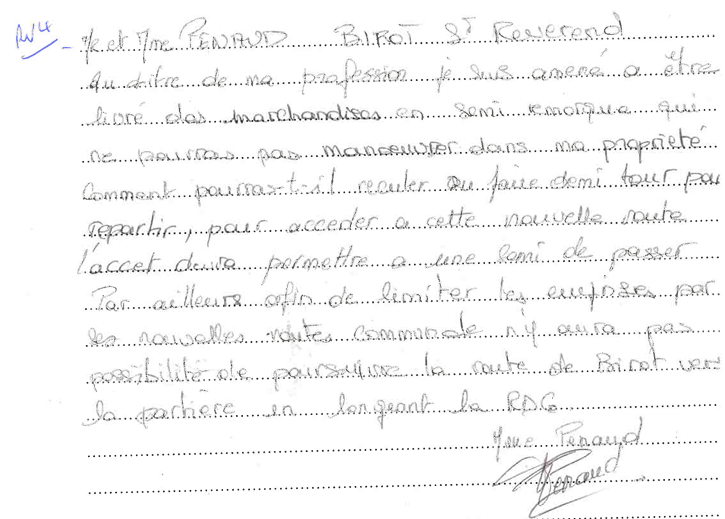 RN4
- Mr et Mme PENAUD BIROT St Reverend
Au titre de ma profession je suis amené a être
livré des marchandises en semi remorque qui
ne pourras pas manoeuvrer dans ma propriété
Comment pourras-t-il reculer ou faire demi tour pou
repartir, pour acceder a cette nouvelle route
l'accet devra permettre a une semi de passer
Par ailleurs afin de limiter les emprises par
les nouvelles routes communale n'y aura pas
possibilité de poursuivre la route de Birot vers
la partière en longeant la RD6
Mme Penaud
Penaud